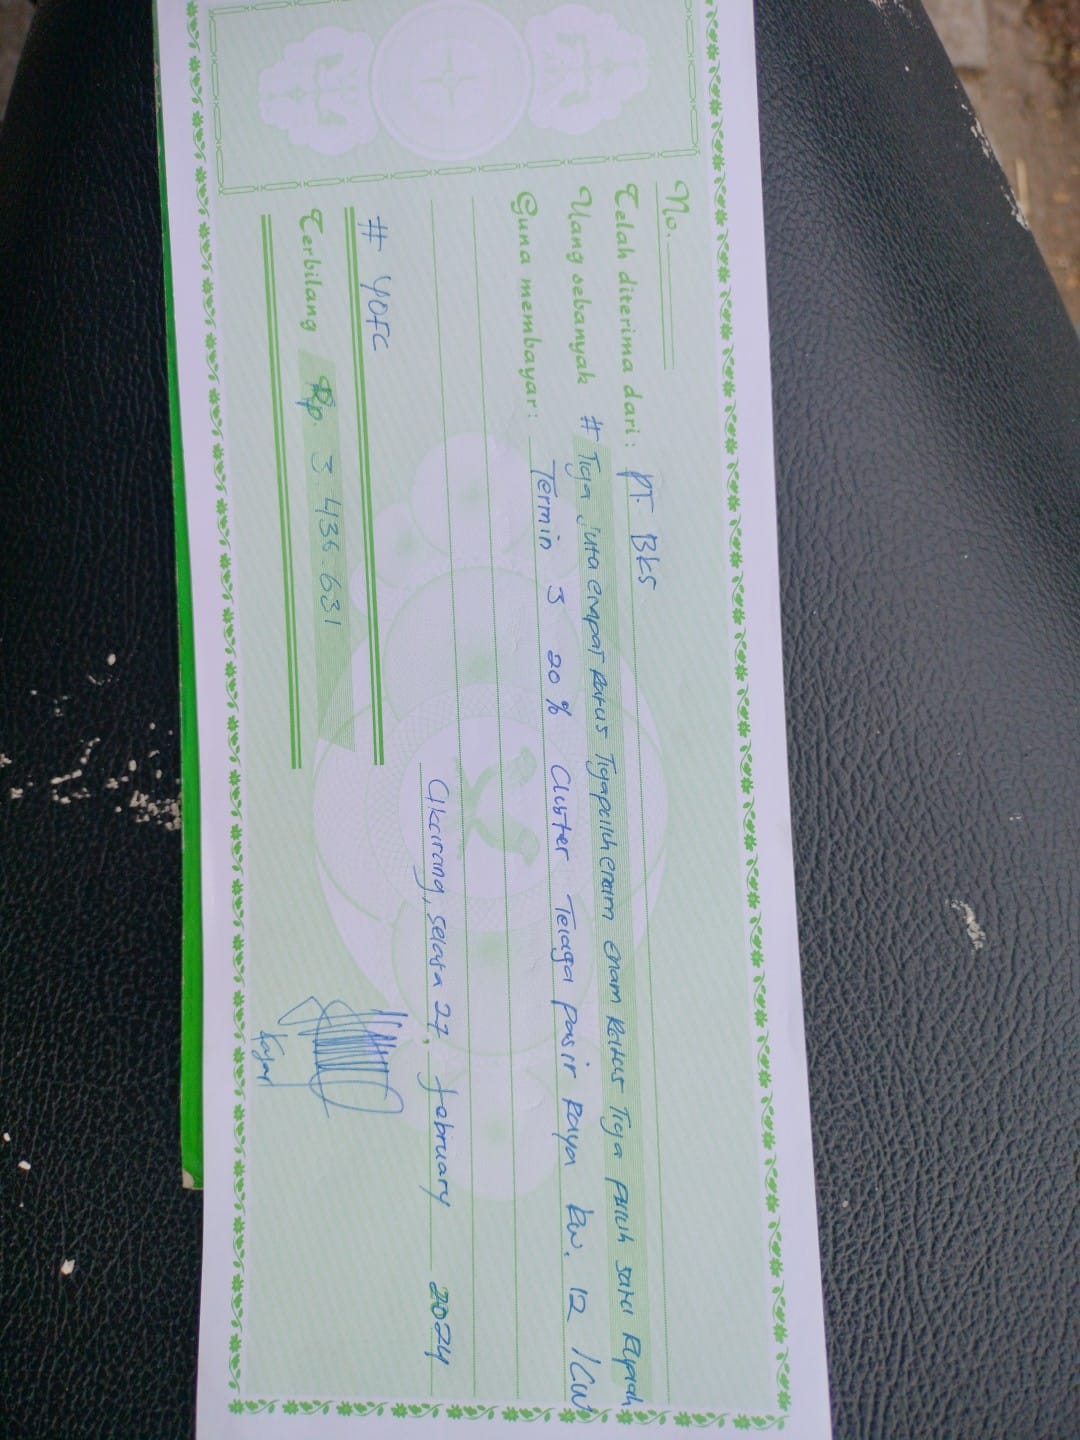 No.
Telah diterima dari: PT. BKS
Uang sebanyak # Tiga juta empat Ratus Tigapuluh enam enam Ratus Tiga puluh satu Rupiah
Guna membayar: Termin 3 20% Cluster Telaga pasir Raya kw. 12 KW
Cikarang, selasa 27, february 2024
# YOFC
Terbilang Rp. 3.436.631